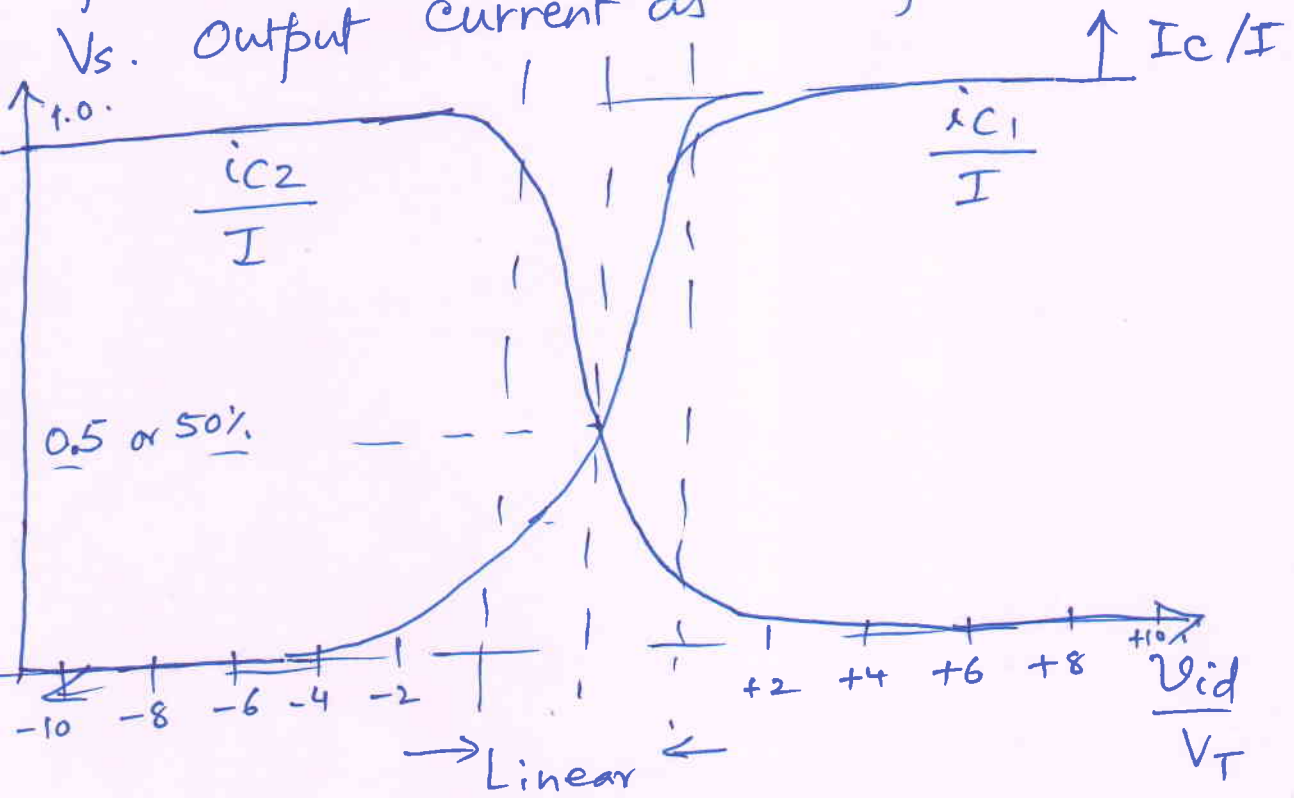 Vs. Output Current as
Ic/I
1.0.
iC2
I
iC1
I
0.5 or 50%
-10 -8 -6 -4 -2 +2 +4 +6 +8 +10
Vid
VT
Linear